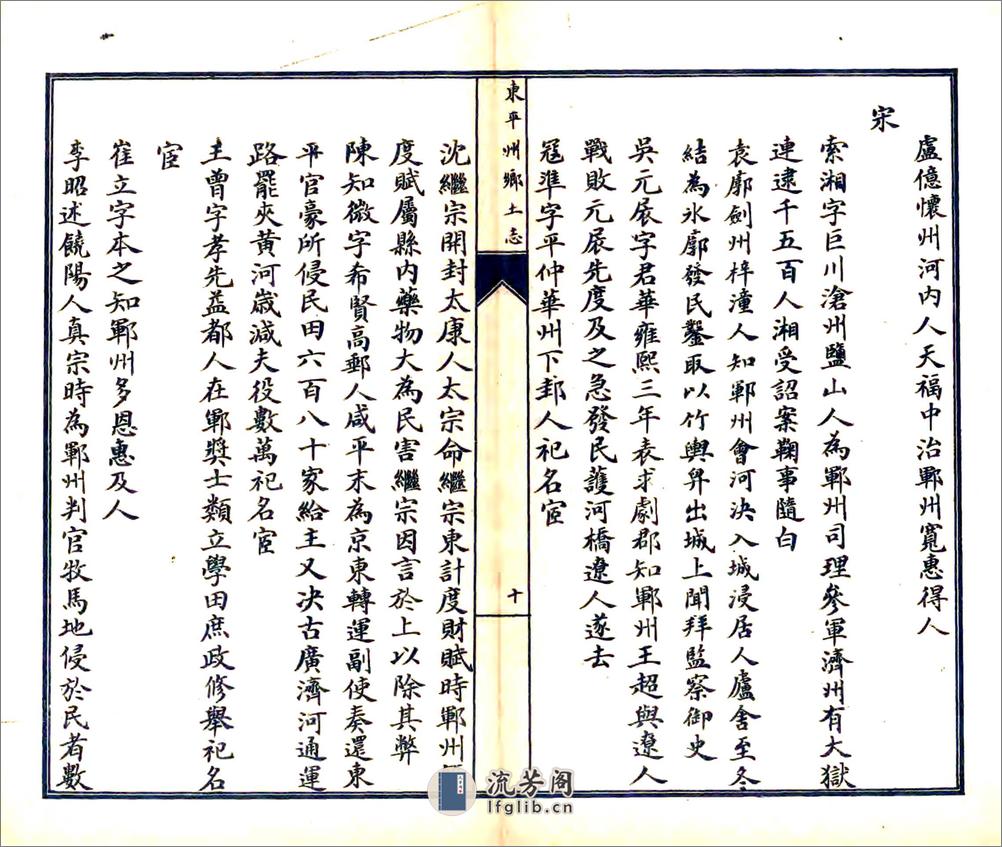 盧億懷州河內人天福中治鄆州寬惠得人
宋
索湘字巨川滄州鹽山人為鄆州司理參軍濟州有大獄
連逮千五百人湘受詔案鞠事隨白
袁廓劍州梓潼人知鄆州會河決入城浸居人廬舍至冬
結為氷廓發民鑿取以竹輿舁出城上聞拜監察御史
吳元扆字君華雍熙三年表求劇郡知鄆州王超與遼人
戰敗元扆先度及之急發民護河橋遼人遂去
冦準字平仲華州下邽人祀名宦
東平州鄉土志
十
沈繼宗開封太康人太宗命繼宗東計度財賦時鄆州
度賦屬縣內藥物大為民害繼宗因言於上以除其弊
陳知微字希賢高郵人咸平末為京東轉運副使奏還東
平官豪所侵民田六百八十家給主又决古廣濟河通運
路罷夾黃河歲減夫役數萬祀名宦
王曾字孝先益都人在鄆獎士類立學田庶政修舉祀名
宦
崔立字本之知鄆州多恩惠及人
李昭述饒陽人真宗時為鄆州判官牧馬地侵於民者數
流芳阁
lfglib.cn